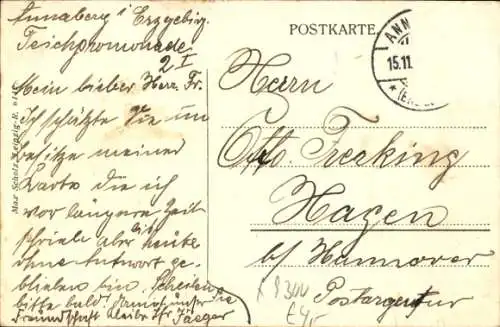 Annaberg i Erzgebirg.
Teichpromenade
2 I
Mein lieber Herr Fr.
Ich schätzte Sie im
besitze meiner
Karte die ich
vor längere Zeit
schrieb aber bis heute
ohne Antwort ge-
blieben bin. Schreiben Sie
bitte bald. unser
Freundschaft bleibe Ihr Jaeger
Max Schulz, Leipzig-R.
POSTKARTE
ANN
15.11
Herrn
Otto Frerking
Hagen
b/ Hannover
Postagentur